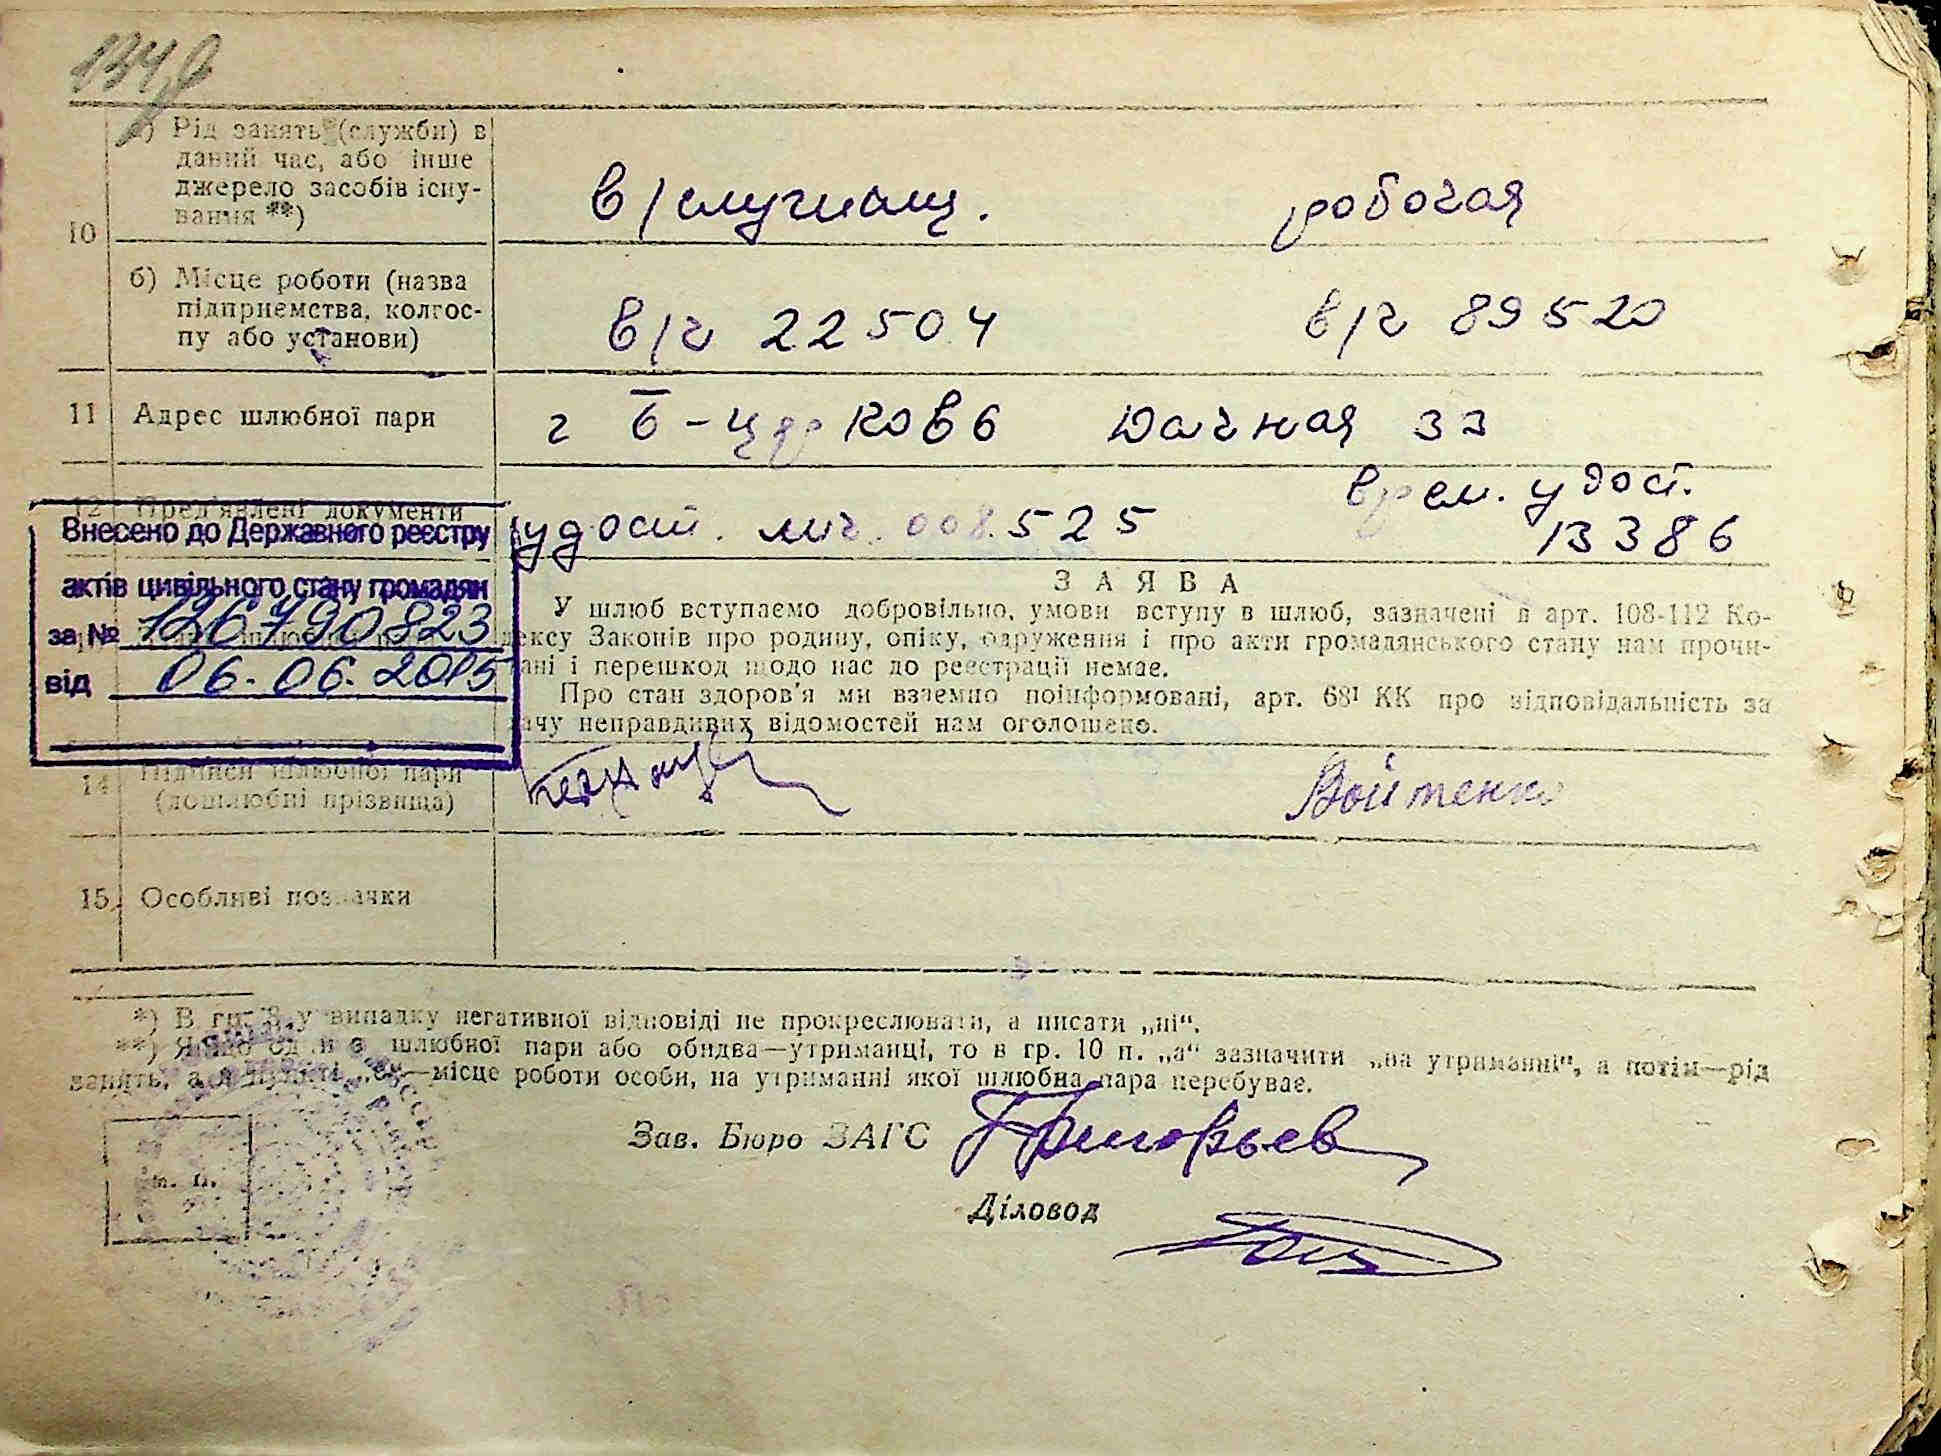 а) Рід занять (служби) в
даний час, або інше
джерело засобів існу-
вання **)
10
в/служащ.
робочая
б) Місце роботи (назва
підприємства, колгос-
пу або установи)
в/ч 22504
в/ч 89520
11 Адрес шлюбної пари
г Б-Церковь Дачная 33
12 Пред'явлені документи
удост. лич. 008.525
врем. удост.
13386
Внесено до Державного реєстру
актів цивільного стану громадян
за № 126790823
від 06.06.2015
ЗАЯВА
У шлюб вступаємо добровільно, умови вступу в шлюб, зазначені в арт. 108-112 Ко-
дексу Законів про родину, опіку, одруження і про акти громадянського стану нам прочи-
тані і перешкод щодо нас до реєстрації немає.
Про стан здоров'я ми взаємно поінформовані, арт. 68¹ КК про відповідальність за
дачу неправдивих відомостей нам оголошено.
14 Підписи шлюбної пари
(дошлюбні прізвища)
Войтенко
15 Особливі позначки
*) В гр. 8 у випадку негативної відповіді не прокреслювати, а писати „ні“.
**) Якщо один з шлюбної пари або обидва—утриманці, то в гр. 10 п. „а“ зазначити „на утриманні“, а потім—рід
занять, а в пункті „б“—місце роботи особи, на утриманні якої шлюбна пара перебуває.
Зав. Бюро ЗАГС Григорьев
Діловод
м. п.